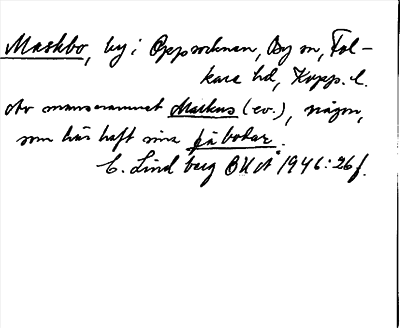 Maskbo, by i Oppsocknen, By sn, Fol-
kara hd, Kopp. l.
Av mansnamnet Markus (ev.), någon,
som här haft sina fäbodar.
C. Lindberg BUÅ 1946: 26 f.